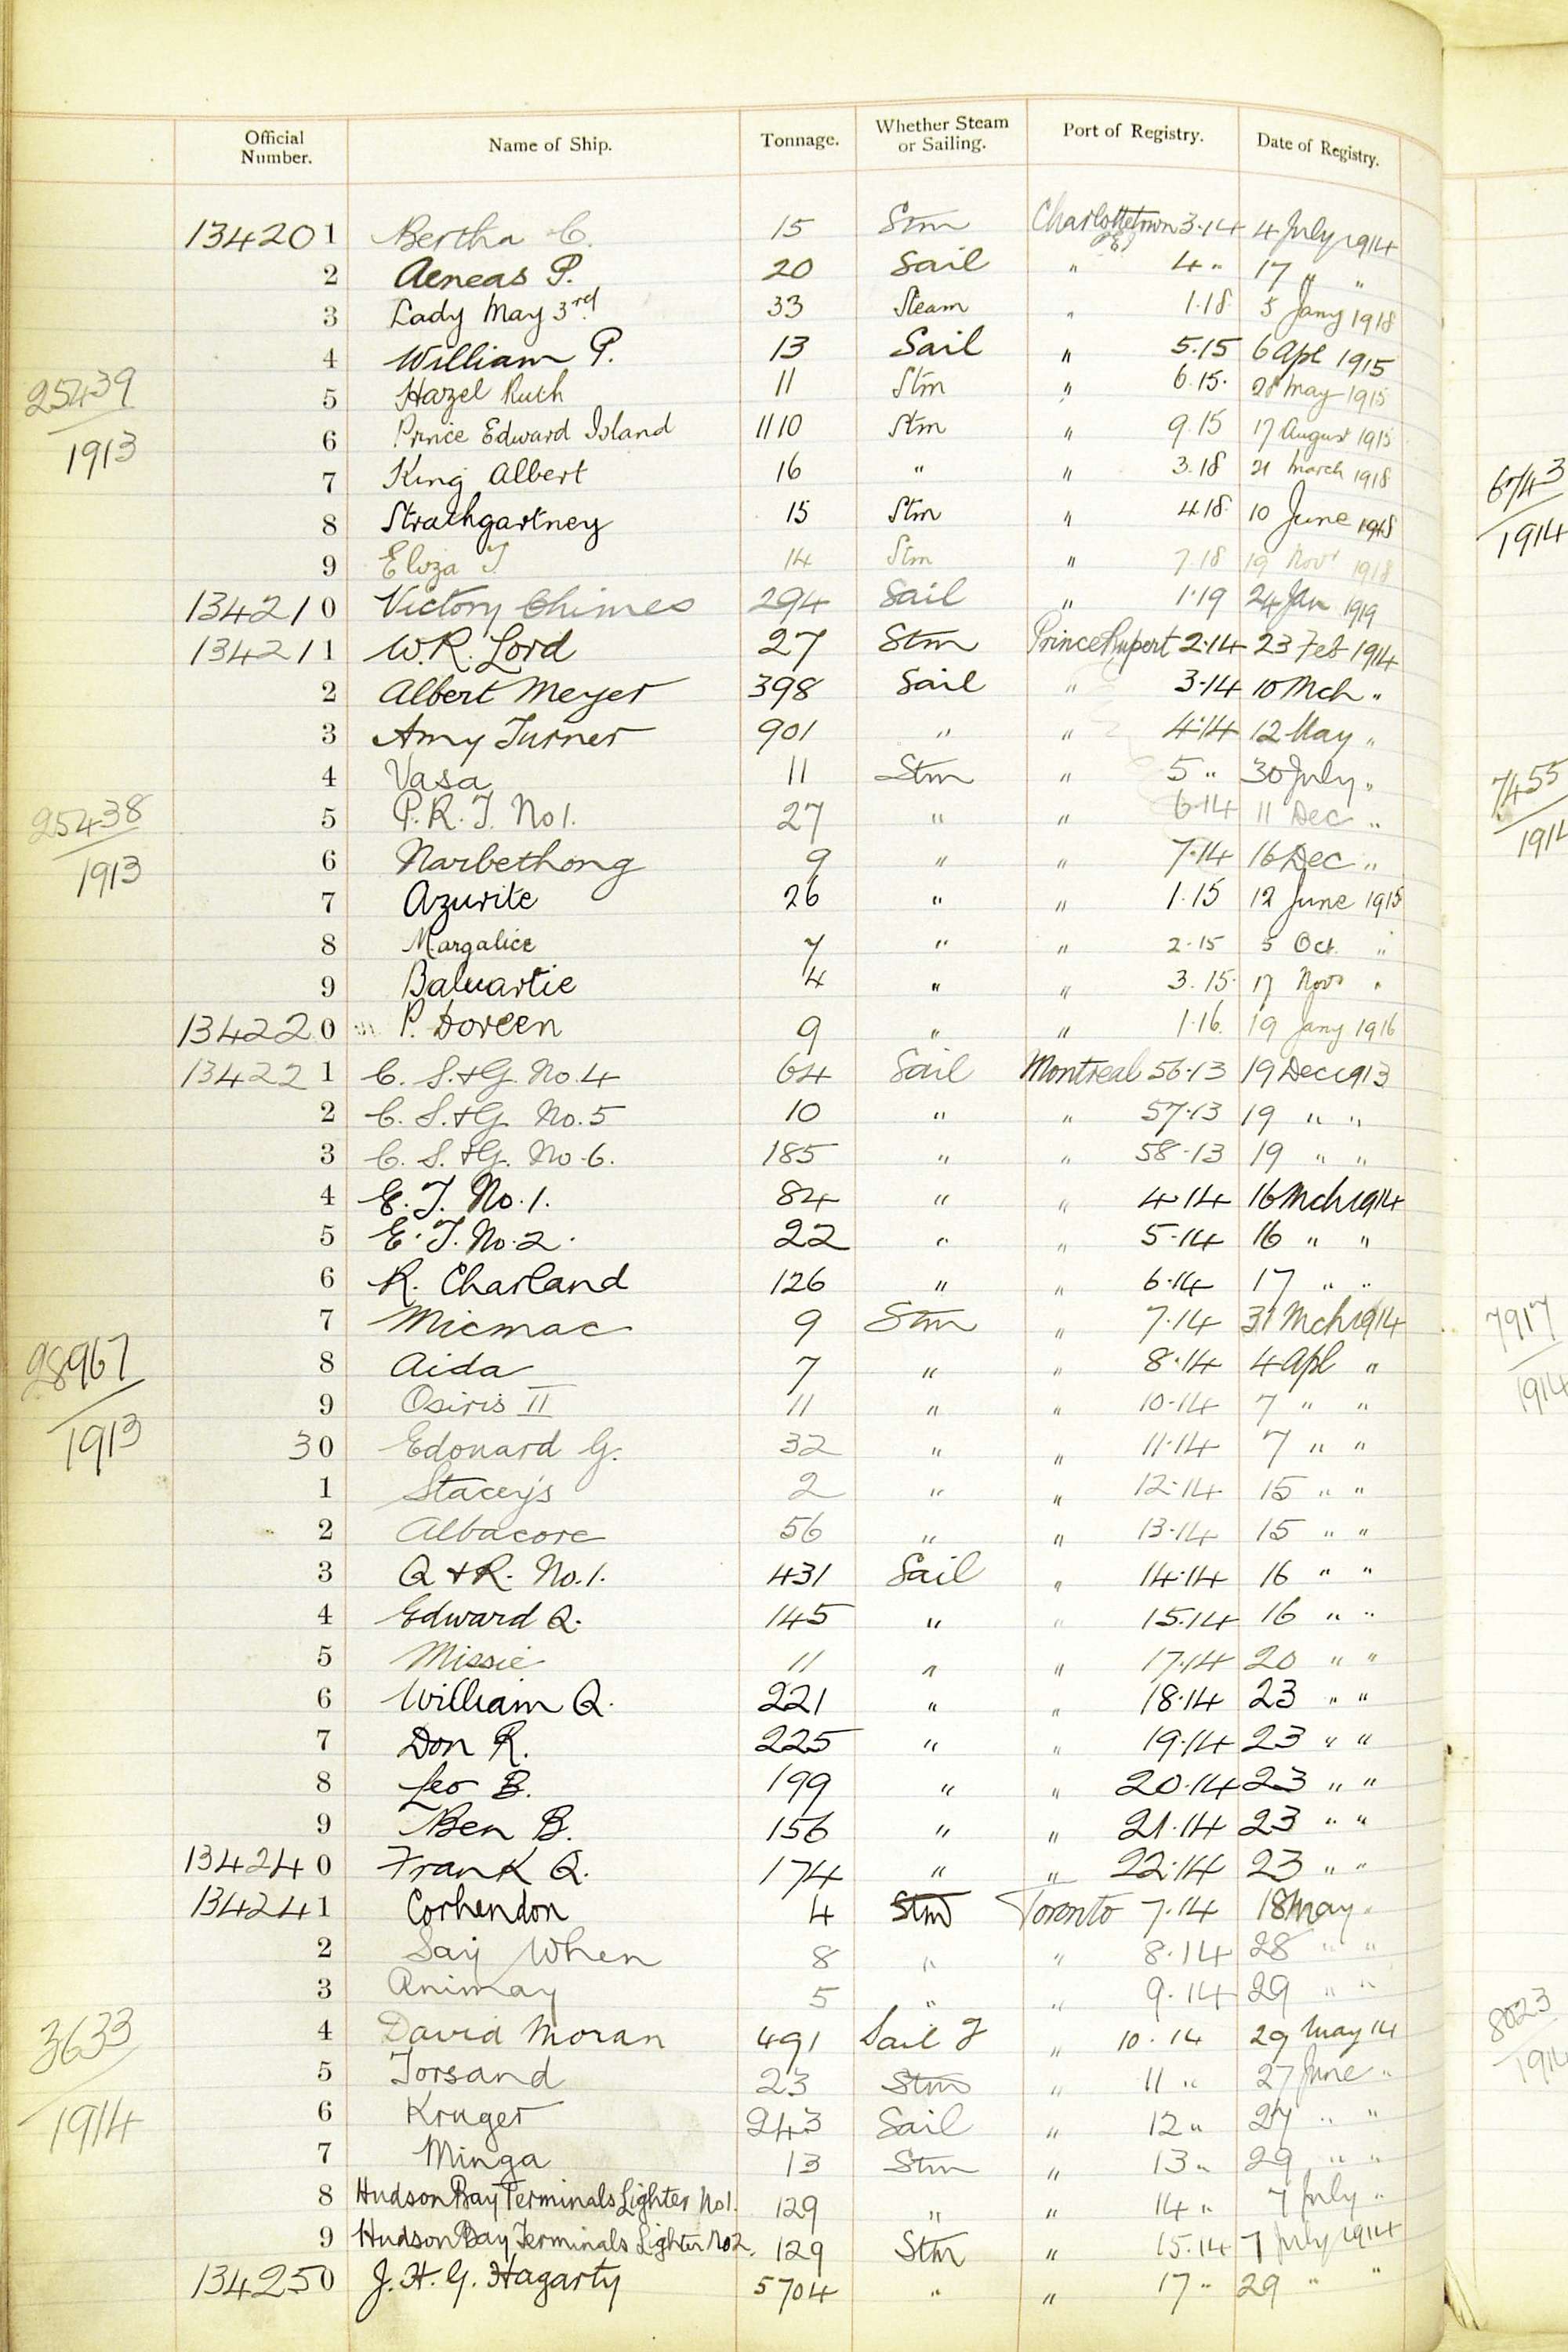 Official Number. Name of Ship. Tonnage. Whether Steam or Sailing. Port of Registry. Date of Registry.
134201 Bertha C. 15 Stm Charlottetown 3.14 4 July 1914
2 Aeneas P. 20 Sail " 4 " 17 " "
3 Lady May 3rd 33 Steam " 1.18 5 Jany 1918
4 William P. 13 Sail " 5.15 6 Apl 1915
25439
5 Hazel Ruth 11 Stm " 6.15. 28 May 1915
1913
6 Prince Edward Island 1110 Stm " 9.15 17 August 1915
7 King Albert 16 " " 3.18 21 March 1918
8 Strathgartney 15 Stm " 4.18. 10 June 1918
9 Eloza T 14 Stm " 7.18 19 Novr 1918
134210 Victory Chimes 294 Sail " 1.19 24 Jan 1919
134211 W.R. Lord 27 Stm Prince Rupert 2.14 23 Feb 1914
2 Albert Meyer 398 Sail " 3.14 10 Mch "
3 Amy Turner 901 " " 4.14 12 May "
4 Vasa 11 Stm " 5 " 30 July "
25438
5 P.R.T. No 1. 27 " " 6.14 11 Dec "
1913
6 Narbethong 9 " " 7.14 16 Dec "
7 Azurite 26 " " 1.15 12 June 1915
8 Margalice 7 " " 2.15 5 Oct. "
9 Baluartie 4 " " 3.15. 17 Novr "
134220 P. Doreen 9 " " 1.16. 19 Jany 1916
134221 C. S. & G. No. 4 64 Sail Montreal 56.13 19 Dec 1913
2 C. S. & G. No. 5 10 " " 57.13 19 " "
3 C. S. & G. No. 6. 185 " " 58.13 19 " "
4 E. T. No. 1. 84 " " 4.14 16 Mch 1914
5 E. T. No. 2. 22 " " 5.14 16 " "
6 R. Charland 126 " " 6.14 17 " "
7 Micmac 9 Stm " 7.14 31 Mch 1914
28967
8 Aida 7 " " 8.14 4 Apl "
9 Osiris II 11 " " 10.14 7 " "
1913
30 Edouard G. 32 " " 11.14 7 " "
1 Staceys 2 " " 12.14 15 " "
2 Albacore 56 " " 13.14 15 " "
3 Q & R. No. 1. 431 Sail " 14.14 16 " "
4 Edward Q. 145 " " 15.14 16 " "
5 Missie 11 " " 17.14 20 " "
6 William Q. 221 " " 18.14 23 " "
7 Don R. 225 " " 19.14 23 " "
8 Leo B. 199 " " 20.14 23 " "
9 Ben B. 156 " " 21.14 23 " "
134240 Frank Q. 174 " " 22.14 23 " "
134241 Corhendon 4 Stm Toronto 7.14 18 May "
2 Say When 8 " " 8.14 28 " "
3 Animay 5 " " 9.14 29 " "
3633
4 David Moran 491 Sail " 10.14 29 May 14
5 Torsand 23 Stm " 11 " 27 June "
1914
6 Kruger 243 Sail " 12 " 27 " "
7 Minga 13 Stm " 13 " 29 " "
8 Hudson Bay Terminals Lighter No 1. 129 " " 14 " 7 July "
9 Hudson Bay Terminals Lighter No 2. 129 Stm " 15.14 7 July 1914
134250 J. H. G. Hagarty 5704 " " 17 " 29 " "
1914
7455
7917
1914
8023